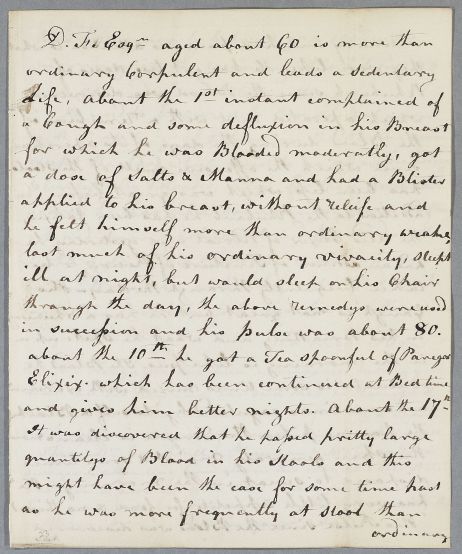 D. F. Esqr aged about 60 is more than
ordinary Corpulent and leads a sedentary
Life, about the 1st instant complained of
a Cough and some defluxion in his Breast
for which he was Blooded moderatly, got
a dose of Salts & Manna and had a Blister
applied to his breast, without releife and
he felt himself more than ordinary weake,
lost much of his ordinary vivacity, slept
ill at night, but would sleep on his Chair
through the day, the above remedys were used
in succession and his pulse was about 80.
about the 10th he got a Tea spoonful of Paregor
Elixir. which has been continued at Bed time
and gives him better nights. About the 17th
It was discovered that he passed pritty large
quantitys of Blood in his stools and this
might have been the case for some time past
as he was more frequently at stool than
ordinary